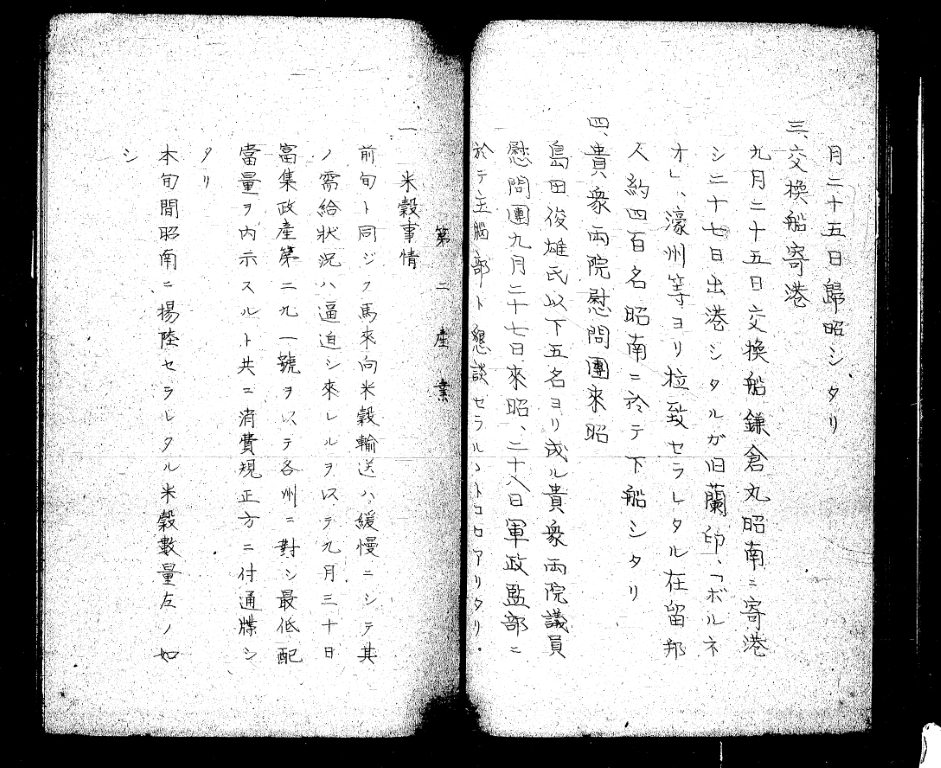 月二十五日歸昭シタリ
三、交換船寄港
九月二十五日交換船鎌倉丸昭南ニ寄港
シ二十七日出港シタルガ旧蘭印、「ボルネ
オ」、濠州等ヨリ拉致セラレタル在留邦
人約四百名昭南ニ於テ下船シタリ
四、貴衆両院慰問團來昭
島田俊雄氏以下五名ヨリ成ル貴衆両院議員
慰問團九月二十七日來昭、二十八日軍政監部ニ
於テ主脳部ト懇談セラルヽトコロアリタリ.
第二產業
一 米穀事情
前旬ト同ジク馬來向米穀輸送ハ緩慢ニシテ其
ノ需給狀況ハ逼迫シ來レルヲ以テ九月三十日
富集政産第二九一號ヲ以テ各州ニ對シ最低配
當量ヲ内示スルト共ニ消費規正方ニ付通牒シ
タリ
本旬間昭南ニ揚陸セラレタル米穀數量左ノ如
シ